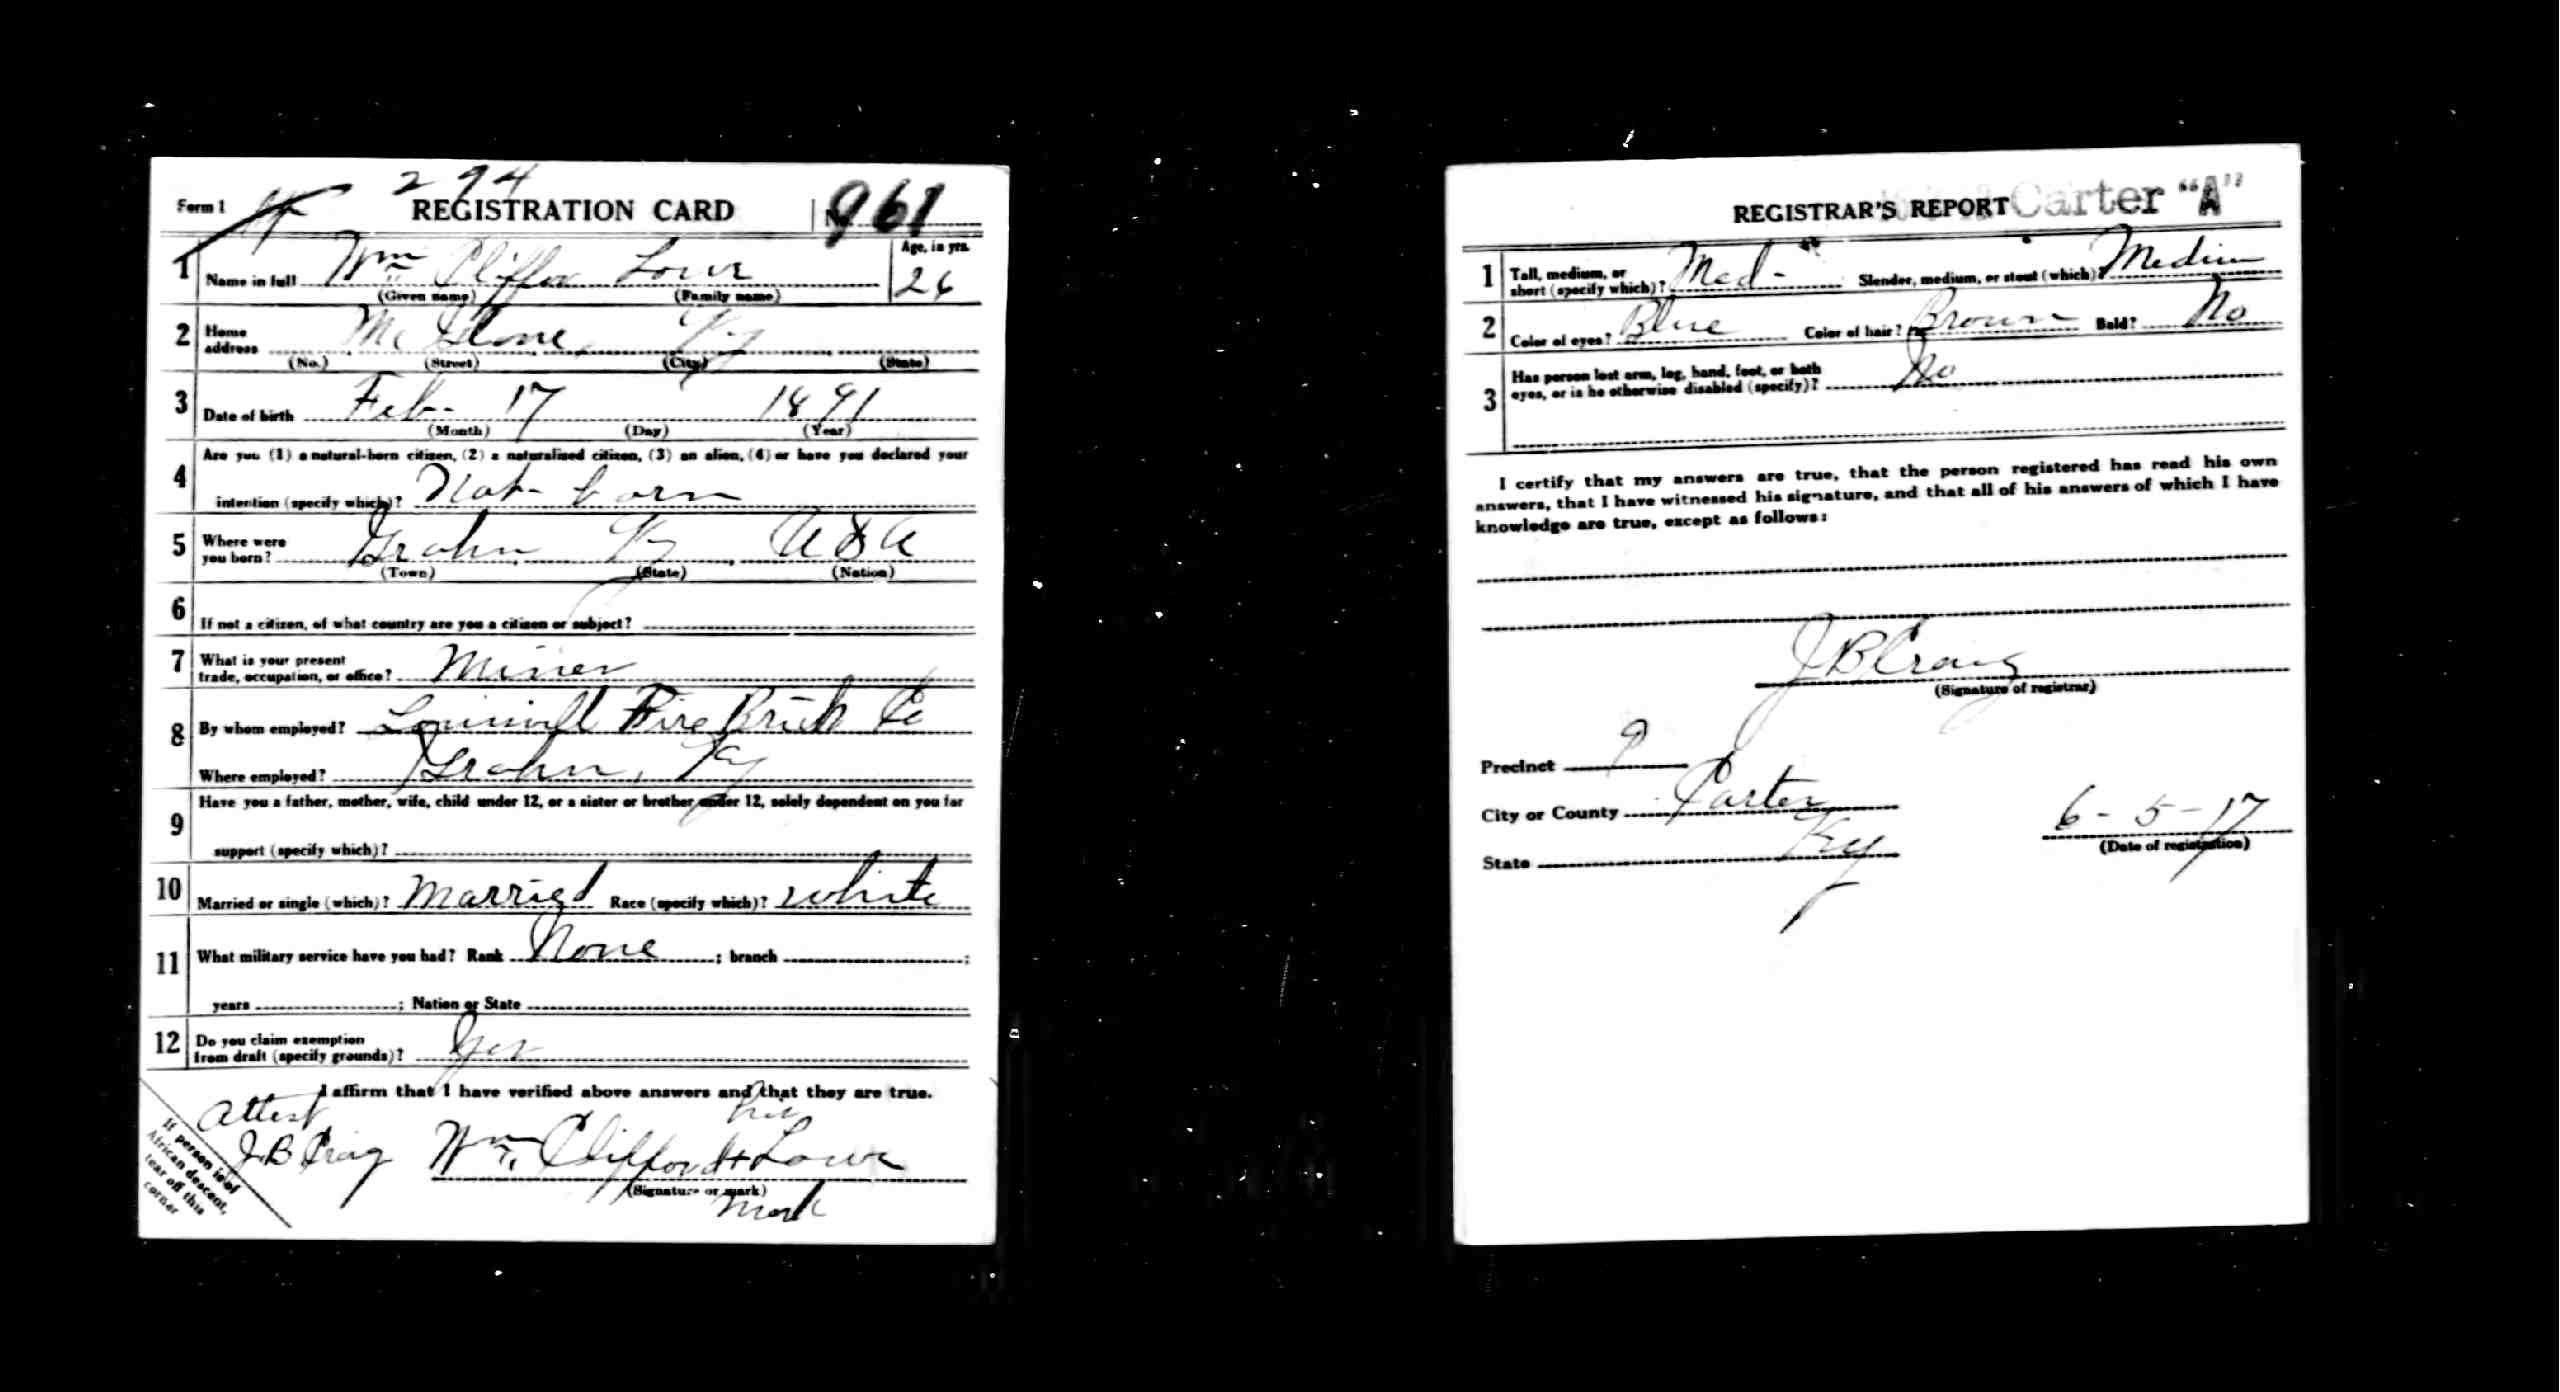 294
Form 1 REGISTRATION CARD No. 961
1 Name in full Wm Cliffor Lowe Age, in yrs. 26
(Given name) (Family name)
2 Home address McGlone, Ky
(No.) (Street) (City) (State)
3 Date of birth Feb - 17 1891
(Month) (Day) (Year)
4 Are you (1) a natural-born citizen, (2) a naturalized citizen, (3) an alien, (4) or have you declared your
intention (specify which)? Nat - born
5 Where were you born? Grahn Ky USA
(Town) (State) (Nation)
6 If not a citizen, of what country are you a citizen or subject?
7 What is your present trade, occupation, or office? Miner
8 By whom employed? Louisvill Fire Brick Co
Where employed? Grahn, Ky
9 Have you a father, mother, wife, child under 12, or a sister or brother under 12, solely dependent on you for
support (specify which)?
10 Married or single (which)? Married Race (specify which)? White
11 What military service have you had? Rank None ; branch ;
years ; Nation or State
12 Do you claim exemption from draft (specify grounds)? Yes
I affirm that I have verified above answers and that they are true.
Attest his
J.B Craig Wm. Clifford + Lowe
(Signature or mark)
mark
If person is of
African descent,
tear off this
corner
REGISTRAR'S REPORT Carter "A"
1 Tall, medium, or short (specify which)? Med - Slender, medium, or stout (which)? Medium
2 Color of eyes? Blue Color of hair? Brown Bald? No
3 Has person lost arm, leg, hand, foot, or both
eyes, or is he otherwise disabled (specify)? No
I certify that my answers are true, that the person registered has read his own
answers, that I have witnessed his signature, and that all of his answers of which I have
knowledge are true, except as follows:
J B Craig
(Signature of registrar)
Precinct 9
City or County Carter
State Ky
6 - 5 - 17
(Date of registration)